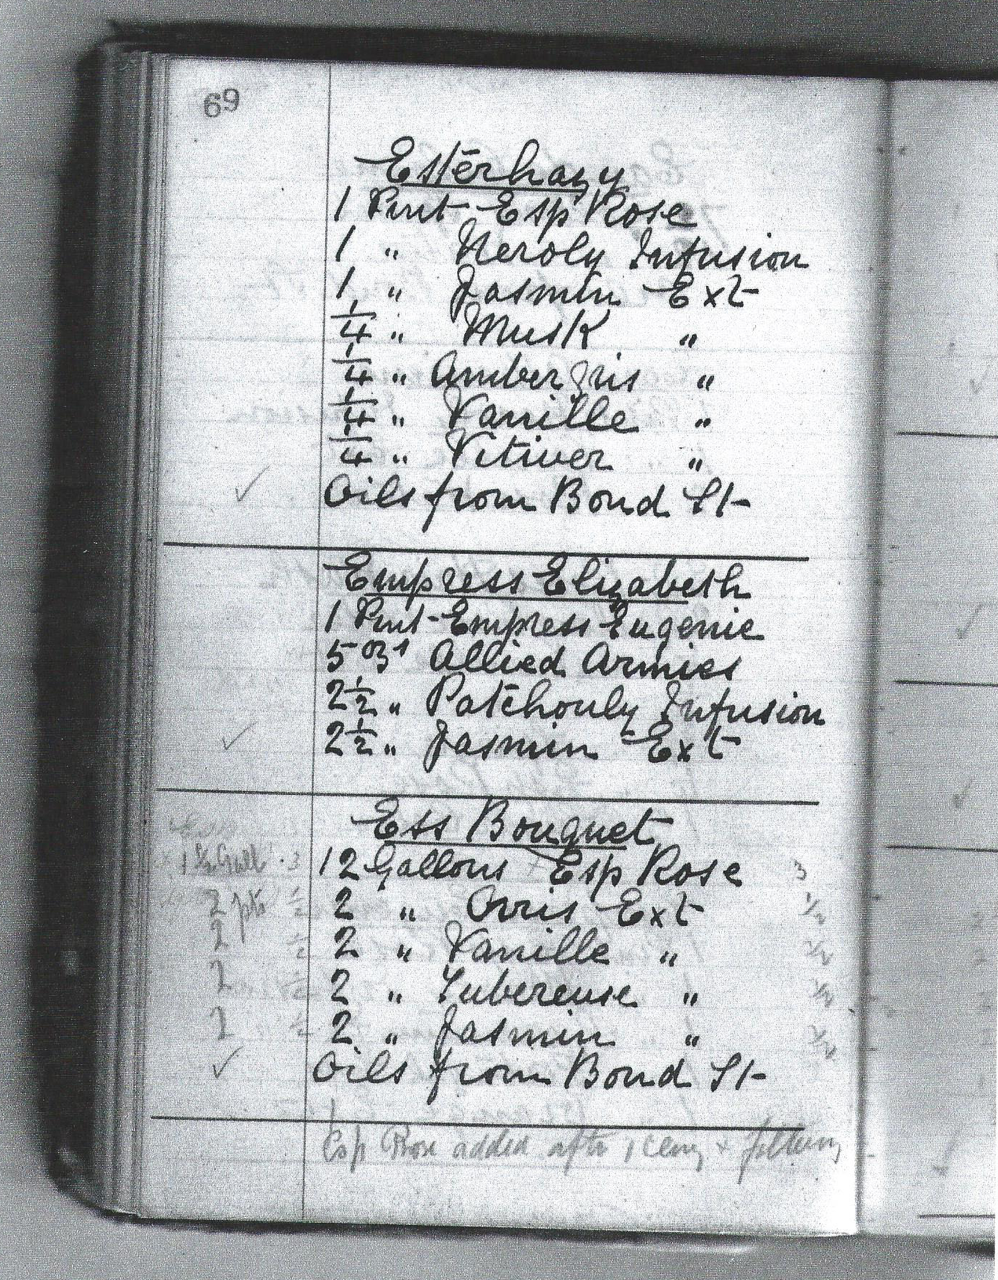 69
Esterhazy
1 Pint Esp Rose
1 " Neroly Infusion
1 " Jasmin Ext
1/4 " Musk "
1/4 " Ambergris "
1/4 " Vanille "
1/4 " Vitiver "
✓ Oils from Bond St
Empress Elizabeth
1 Pint Empress Eugenie
5 ozs Allied Armies
2 1/2 " Patchouly Infusion
✓ 2 1/2 " Jasmin Ext
Ess Bouquet
12 Gallons Esp Rose 3
2 pts 1/2 2 " Orris Ext 1/2
2 1/2 2 " Vanille " 1/2
2 1/2 2 " Tubereuse " 1/2
2 1/2 2 " Jasmin " 1/2
✓ Oils from Bond St
Esp Rose added after & filtering